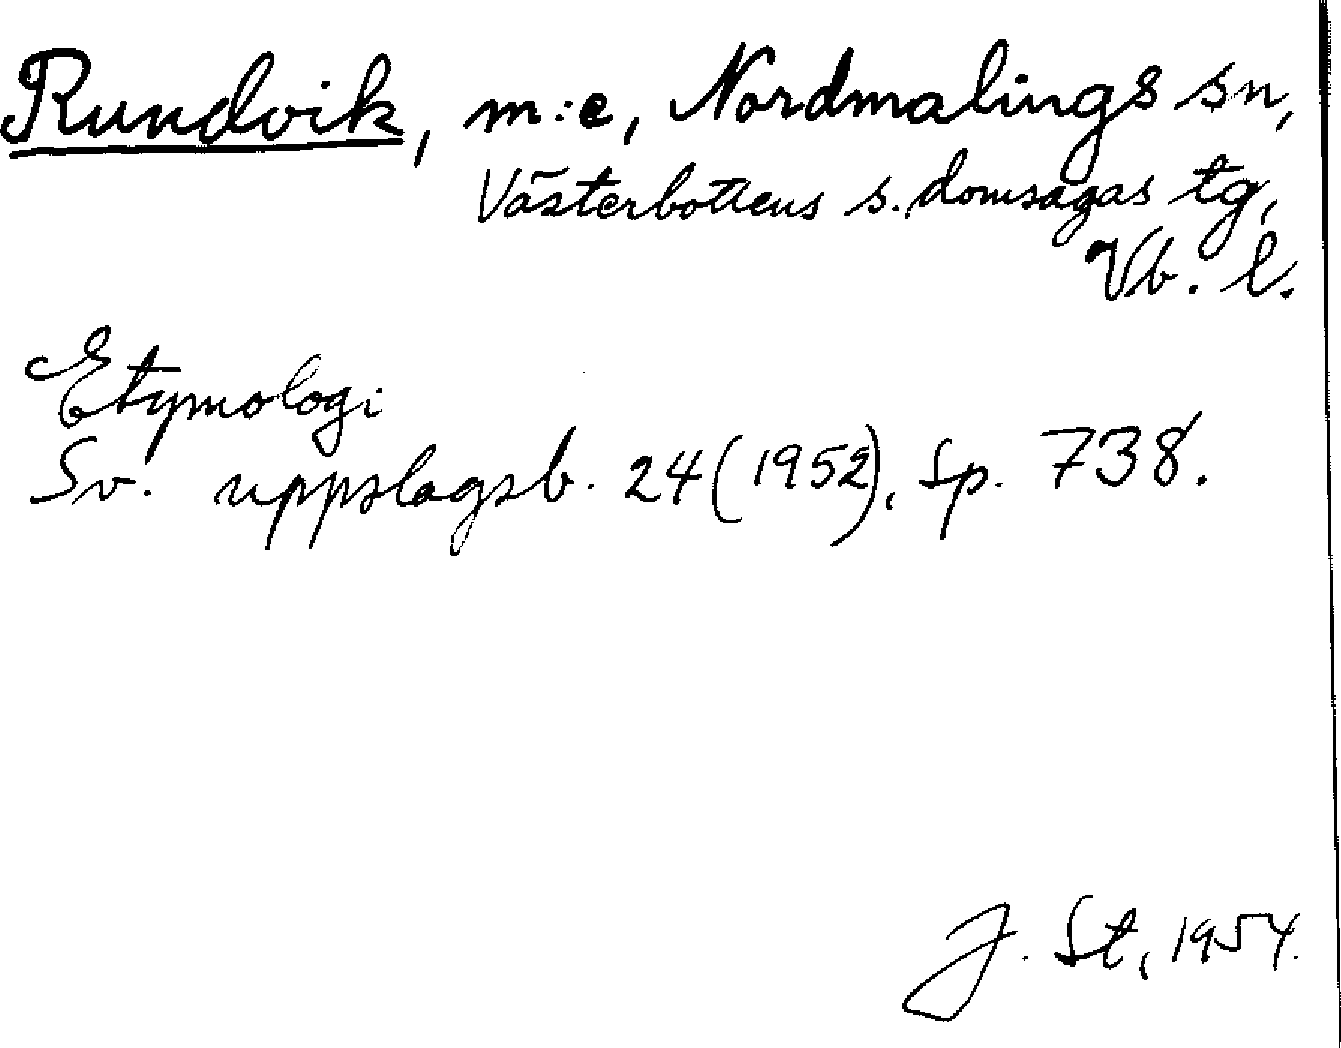 Rundvik, m:e, Nordmalings sn,
Västerbottens s. domsagas tg,
Vb. l.
Etymologi
Sv. uppslagsb. 24 (1952), sp. 738.
J. St, 1954.